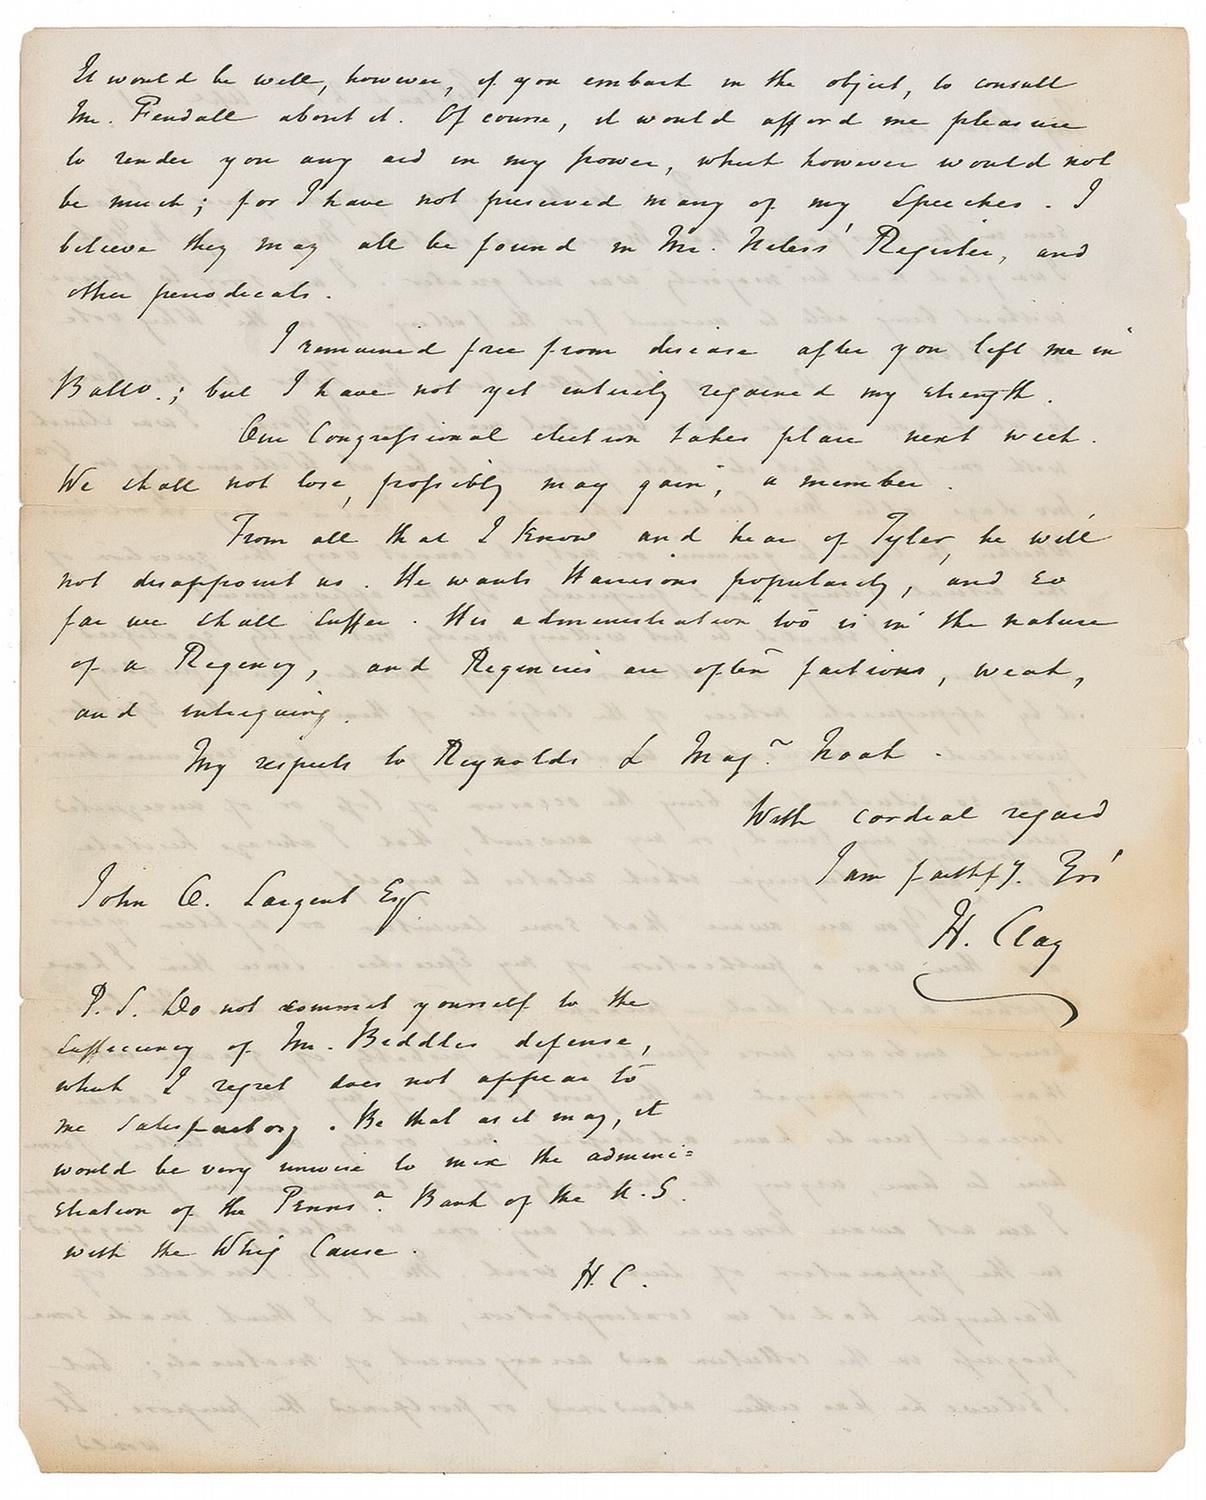 It would be well, however, if you embark in the object, to consult
Mr. Fendall about it. Of course, it would afford me pleasure
to render you any aid in my power, which however would not
be much; for I have not preserved many of my Speeches. I
believe they may all be found in Mr. Niles's Register, and
other periodicals.
I remained free from disease after you left me in
Balto.; but I have not yet entirely regained my strength.
Our Congressional election takes place next week.
We shall not lose, possibly may gain, a member.
From all that I know and hear of Tyler, he will
not disappoint us. He wants Harrisons popularity, and so
far we shall suffer. His administration too is in the nature
of a Regency, and Regencies are often factious, weak,
and intriguing.
My respects to Reynolds & Majr. Noah.
With cordial regard
I am faithfy. Yrs
John O. Sargent Esq
H. Clay
P.S. Do not commit yourself to the
sufficiency of Mr. Biddles defense,
which I regret does not appear to
me satisfactory. Be that as it may, it
would be very unwise to mix the admini=
stration of the Pennsa. Bank of the U.S.
with the Whig Cause.
H.C.